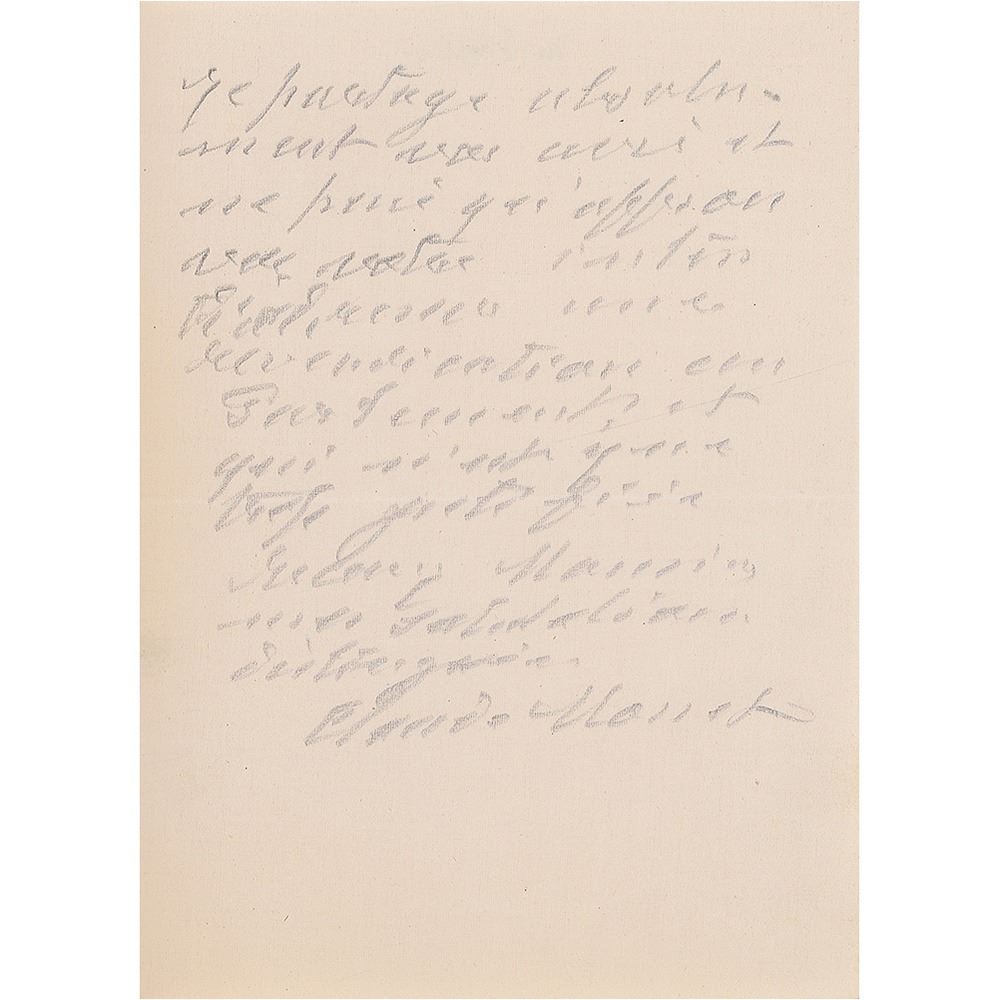 Je partage absolu-
ment votre avis et
ne puis qu'approu
ver votre inten
tion une
revendication au
Parlement, et
qui n'est que
très justifiée
Recevez Monsieur
mes salutations
distinguées
Claude Monet